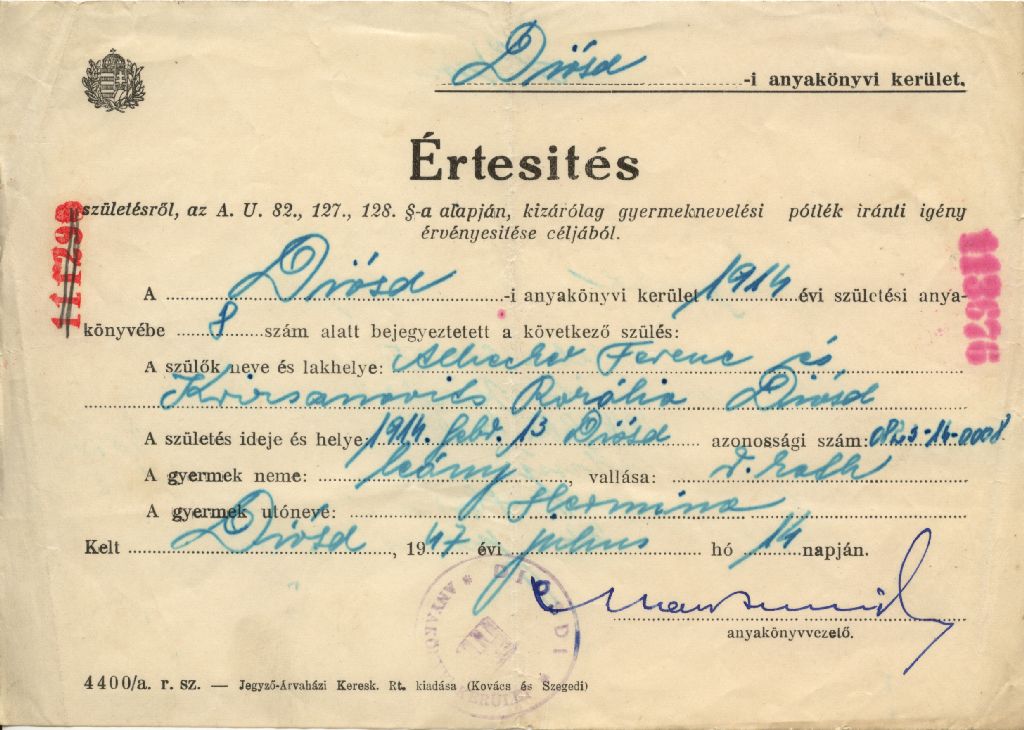 Diósd -i anyakönyvi kerület.
Értesités
születésről, az A. U. 82., 127., 128. §-a alapján, kizárólag gyermeknevelési pótlék iránti igény
érvényesitése céljából.
111298
113676
A Diósd -i anyakönyvi kerület 1914 évi születési anya-
könyvébe 8 szám alatt bejegyeztetett a következő szülés:
A szülők neve és lakhelye: Ferenc és
Rozália Diósd
A születés ideje és helye: 1914. febr. 13 Diósd azonossági szám:
A gyermek neme: leány, vallása: r. kath
A gyermek utóneve: Hermina
Kelt Diósd, 1947 évi julius hó 14 napján.
anyakönyvvezető.
DIÓSDI ANYAKÖNYVI KERÜLET
4400/a. r. sz. — Jegyző-Árvaházi Keresk. Rt. kiadása (Kovács és Szegedi)